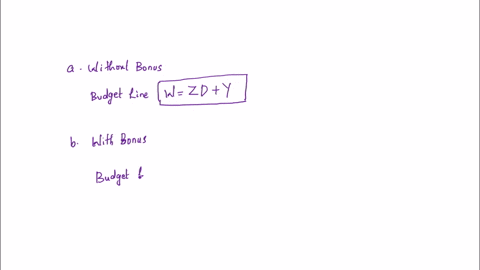 a. Without Bonus
Budget Line W = ZD + Y
b. With Bonus
Budget L